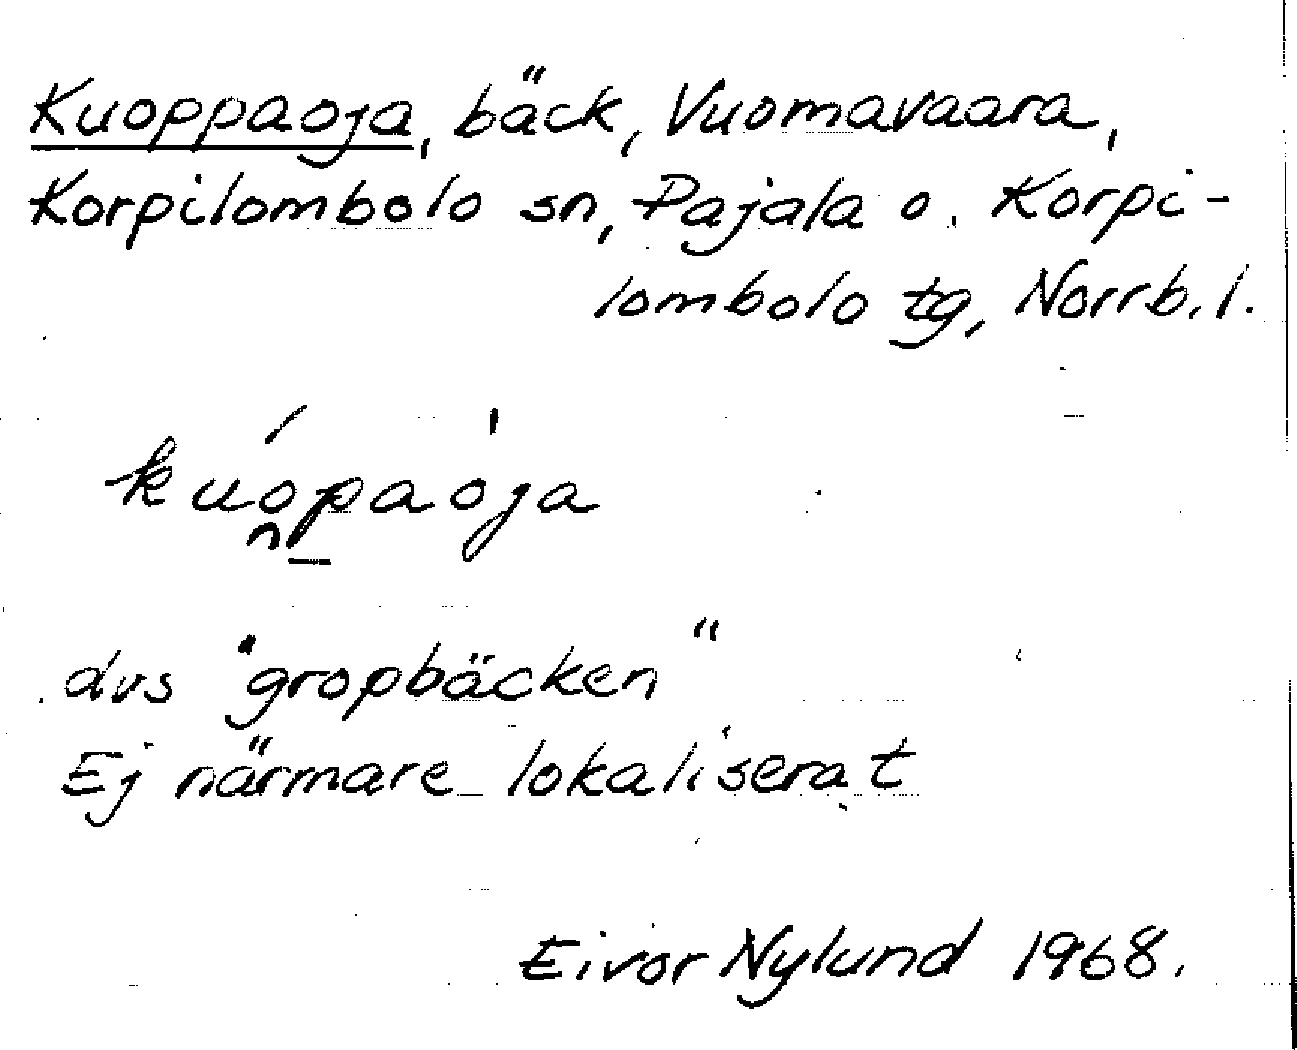 Kuoppaoja, bäck, Vuomavaara,
Korpilombolo sn, Pajala o. Korpi-
lombolo tg, Norrb.l.
kuo̯p̱aoja
dvs "gropbäcken"
Ej närmare lokaliserat
Eivor Nylund 1968.